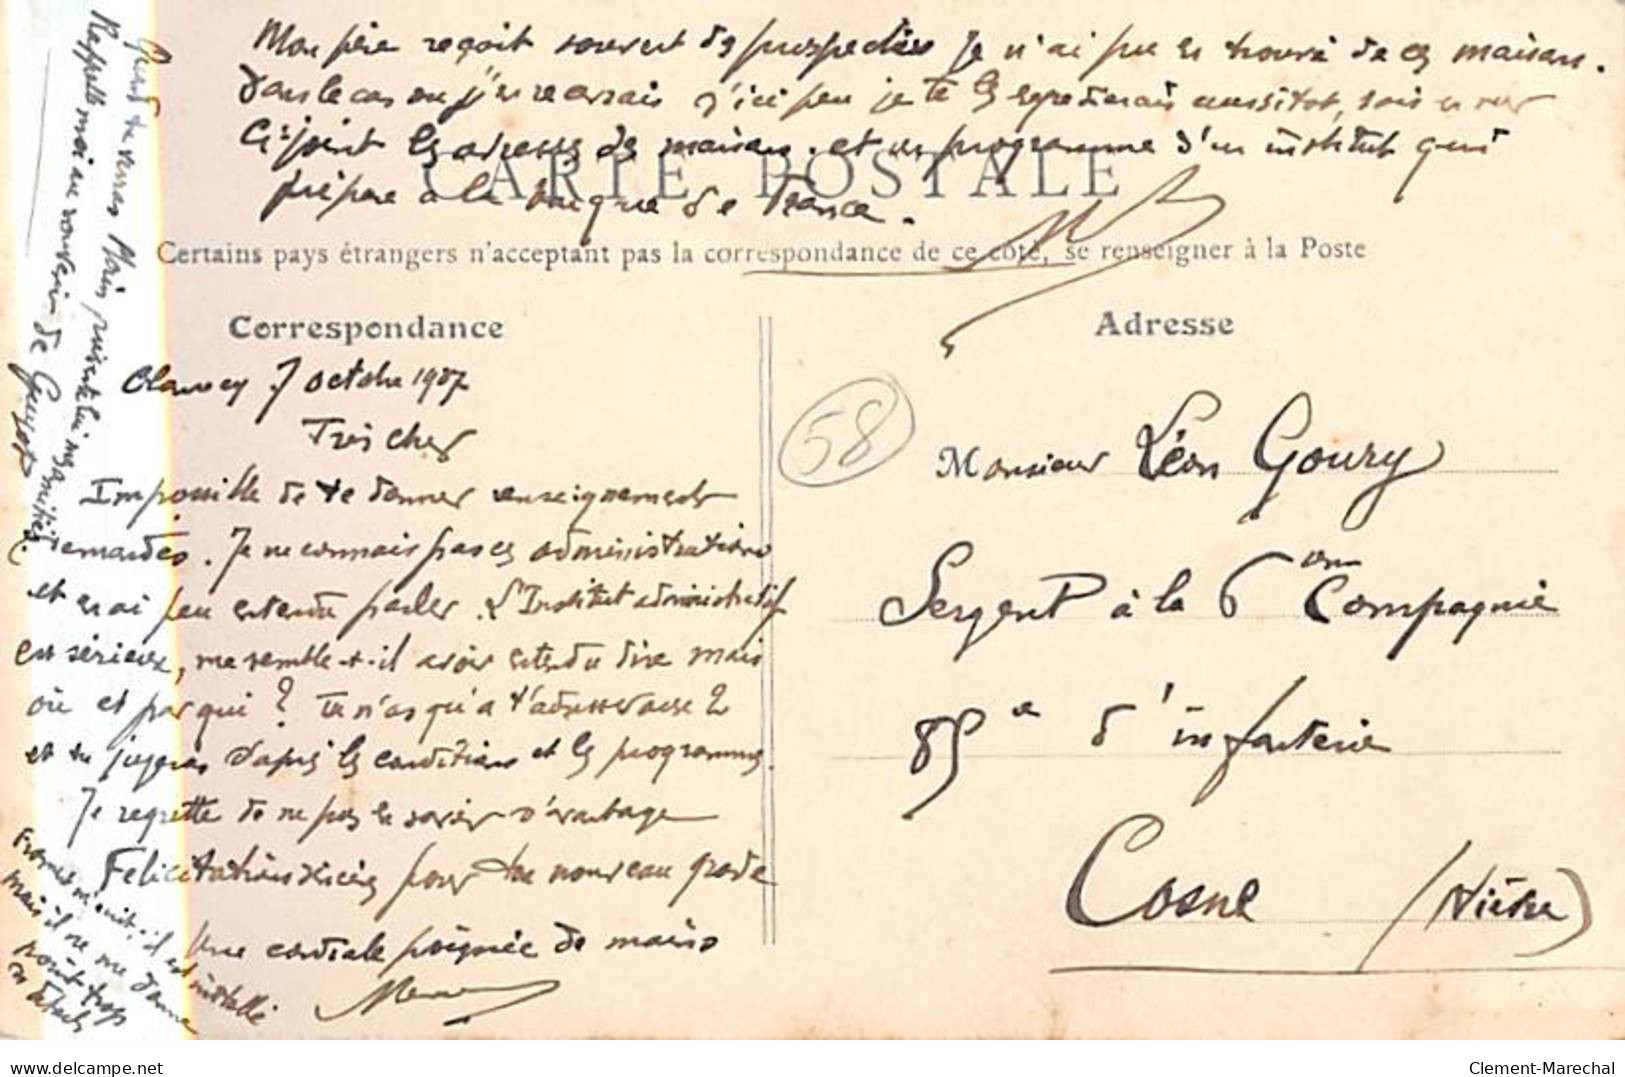 Mon père reçoit souvent des prospectus Je n'ai pu en trouver de ces maisons.
Dans le cas où j'en recevrais d'ici peu je te les expédierais aussitôt, sois en sûr
Ci-joint les adresses des maisons. et un programme d'un institut qui
prépare à la Banque de France.
CARTE POSTALE
Certains pays étrangers n'acceptent pas la correspondance de ce côté, se renseigner à la Poste
Correspondance
Clamecy 7 octobre 1907
Très cher
Impossible de te donner renseignements
demandés. Je ne connais pas ces administrations
et en ai peu entendu parler. L'Institut administratif
est sérieux, me semble-t-il avoir entendu dire mais
où et par qui ? Tu n'as qu'à t'adresser aux 2
et tu jugeras d'après les conditions et les programmes.
Je regrette de ne pas en savoir d'avantage
Félicitations sincères pour ton nouveau grade
Une cordiale poignée de mains
Quand tu verras présente lui mes amitiés.
Rappelle moi au souvenir de Guyot
m'écrit; il est installé
mais il ne me donne
point trop
de détails
58
Adresse
Monsieur Léon Goury
Sergent à la 6eme Compagnie
85e d'infanterie
Cosne (Nièvre)
www.delcampe.net
Clement-Marechal